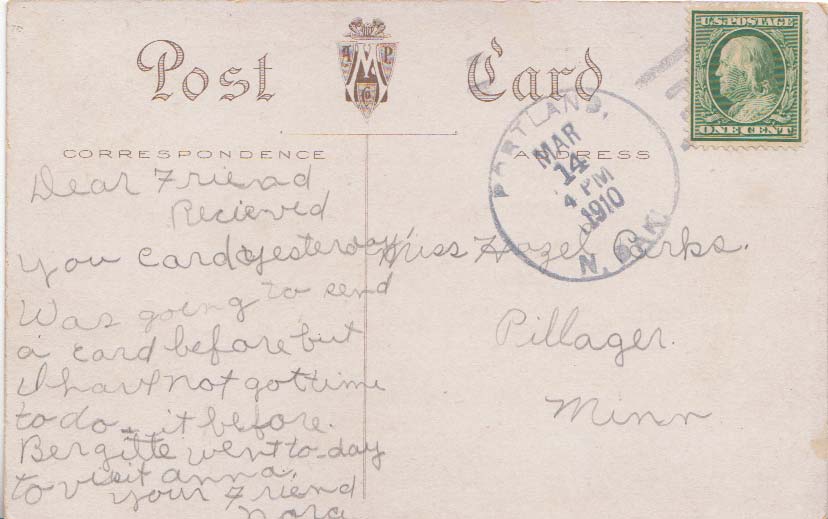 Post Card
A M P Co
U.S. POSTAGE
ONE CENT
PORTLAND,
MAR
14
4 PM
1910
N. DAK.
CORRESPONDENCE
ADDRESS
Dear Friend
Recieved
you card yesterday,
Was going to send
a card before but
I have not got time
to do - it before.
Bergitte went to-day
to visit anna.
your Friend
Nora
Miss Hazel Parks.
Pillager.
Minn